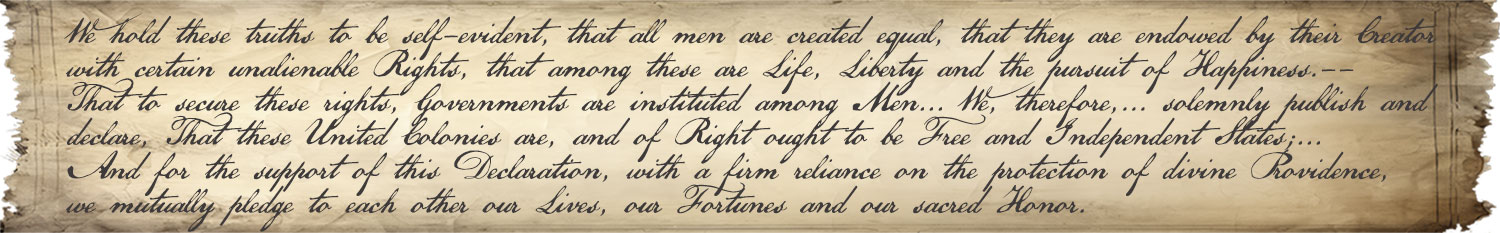 We hold these truths to be self-evident, that all men are created equal, that they are endowed by their Creator
with certain unalienable Rights, that among these are Life, Liberty and the pursuit of Happiness.--
That to secure these rights, Governments are instituted among Men... We, therefore,... solemnly publish and
declare, That these United Colonies are, and of Right ought to be Free and Independent States;...
And for the support of this Declaration, with a firm reliance on the protection of divine Providence,
we mutually pledge to each other our Lives, our Fortunes and our sacred Honor.